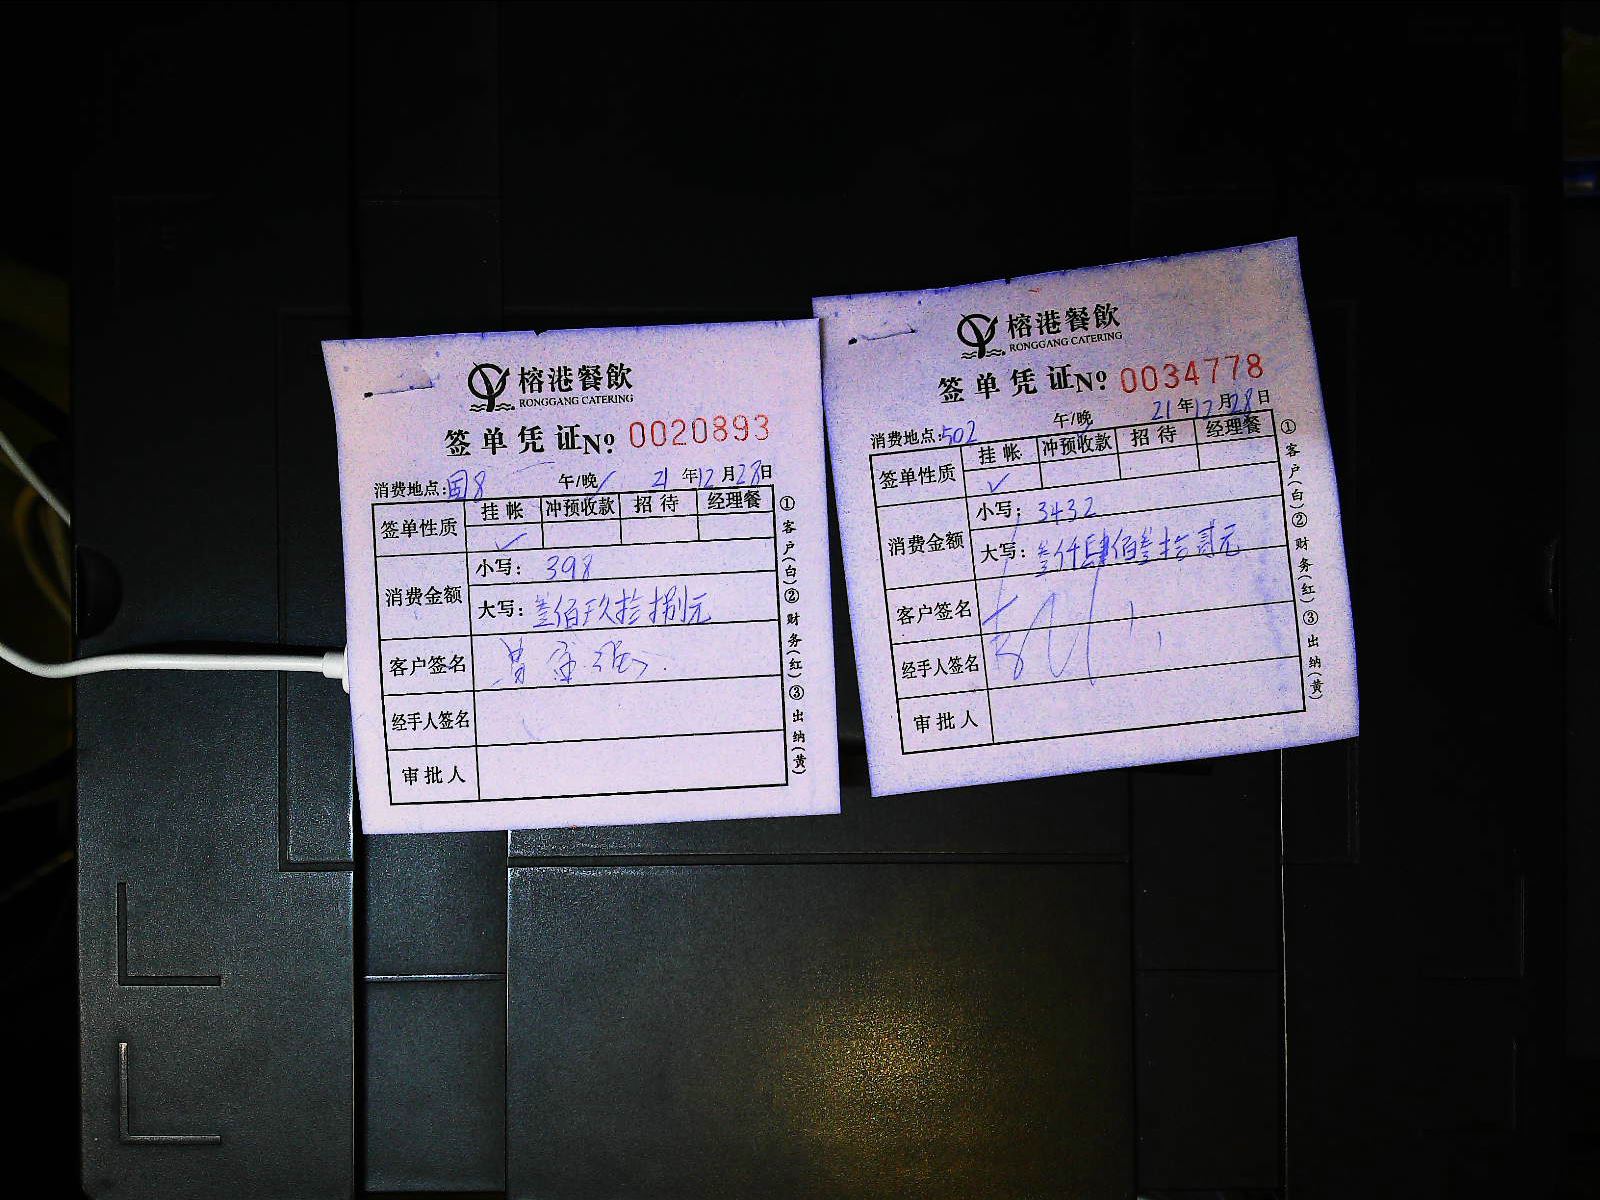 榕港餐飲
RONGGANG CATERING
签单凭证 No 0020893
消费地点:国8 午/晚 21年12月28日
签单性质 挂帐 冲预收款 招待 经理餐
✓
消费金额 小写: 398
大写: 叁佰玖拾捌元
客户签名
经手人签名
审批人
①客户(白)②财务(红)③出纳(黄)
榕港餐飲
RONGGANG CATERING
签单凭证 No 0034778
消费地点:502 午/晚 21年12月28日
签单性质 挂帐 冲预收款 招待 经理餐
✓
消费金额 小写: 3432
大写: 叁仟肆佰叁拾贰元
客户签名
经手人签名
审批人
①客户(白)②财务(红)③出纳(黄)